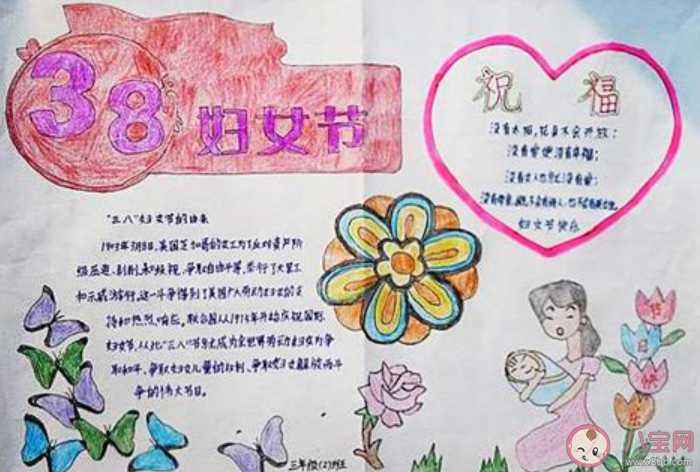 38 妇女节
祝福
没有太阳,花朵不会开放;
没有爱便没有幸福;
没有女人也就没有爱;
没有母亲,既不会有诗人,也不会有英雄。
妇女节快乐
"三八"妇女节的由来
1909年3月8日,美国芝加哥的女工为了反对资产阶
级压迫、剥削和歧视,争取自由平等,举行了大罢工
和示威游行,这一斗争得到了美国广大劳动妇女的支
持和热烈响应。联合国从1975年开始庆祝国际
妇女节,从此"三八"节就成为全世界劳动妇女为争
取和平、争取妇女儿童的权利、争取妇女解放而斗
争的伟大节日。
节日快乐
三年级(2)班
八宝网
www.8bb.com